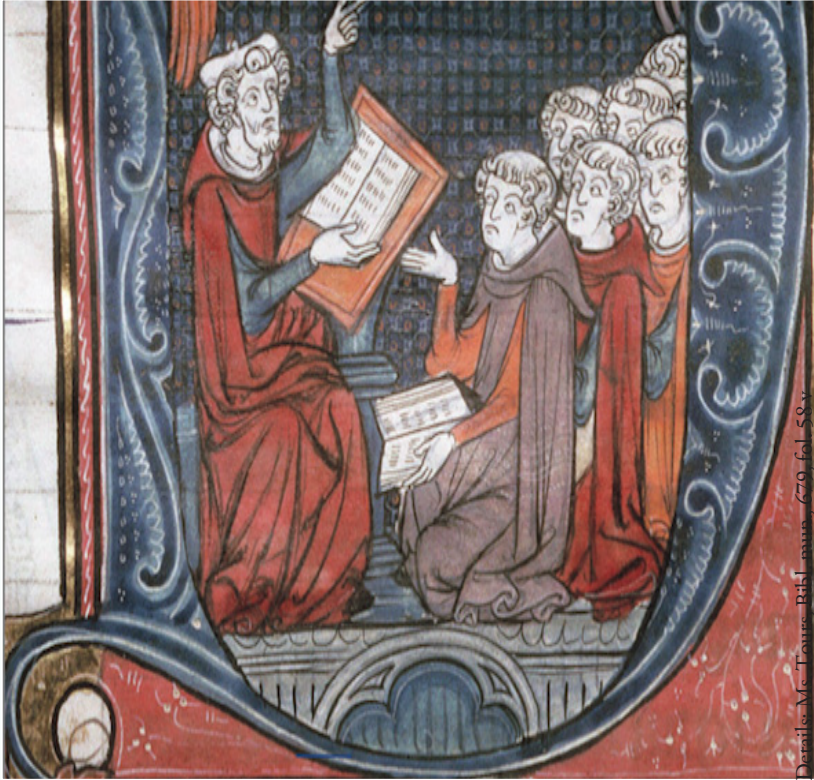 Details: Ms. Tours, Bibl. mun., 679, fol. 58 v